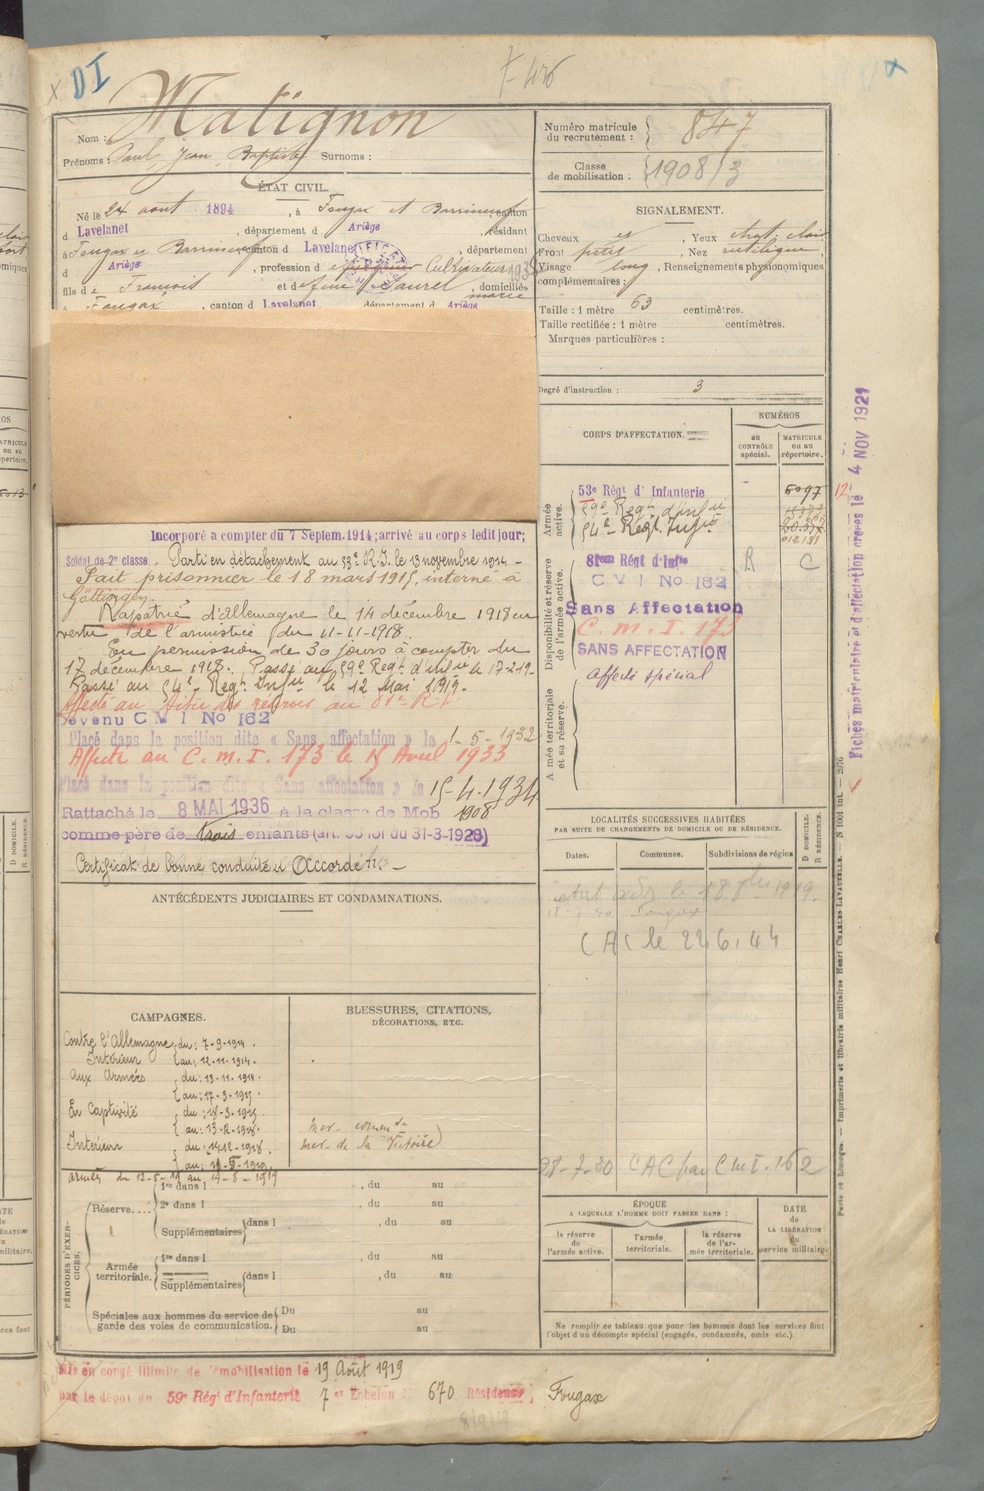 DI
Nom : Matignon
Prénoms : Paul, Jean Baptiste Surnoms :
Numéro matricule du recrutement : 847
Classe de mobilisation : 1908/3
ÉTAT CIVIL.
Né le 24 août 1894, à Fougax et Barrineuf, canton
d Lavelanet, département d Ariège, résidant
à Fougax et Barrineuf, canton d Lavelanet, département
d Ariège, profession d Cultivateur
fils de François et de Saurel, domiciliés
à Fougax, canton d Lavelanet, département d Ariège
marié
SIGNALEMENT.
Cheveux , Yeux chat. clair
Front petit, Nez rectiligne
Visage long, Renseignements physionomiques
complémentaires :
Taille : 1 mètre 63 centimètres.
Taille rectifiée : 1 mètre centimètres.
Marques particulières :
Degré d'instruction : 3
CORPS D'AFFECTATION.
NUMÉROS
au CONTRÔLE spécial.
MATRICULE ou au répertoire.
Armée active.
53e Régt d'Infanterie
59e Régt d'infie
54e Régt Infie
6097
Disponibilité et réserve de l'armée active.
81eme Régt d'Infie
R C
C M I No 162
Sans Affectation
C. m. I. 173
SANS AFFECTATION
Affecté spécial
Armée territoriale et sa réserve.
Incorporé a compter du 7 Septem. 1914; arrivé au corps ledit jour;
Soldat de 2e classe. Parti en détachement au 53e R.I. le 13 novembre 1914 -
Fait prisonnier le 18 mars 1915, interné à
Göttingen.
Rapatrié d'Allemagne le 14 décembre 1918 en
vertu de l'armistice du 11-11-1918.
En permission de 30 jours à compter du
17 décembre 1918. Passé au 59e Regt d'infie le 17-2-19.
Passé au 54e Regt Infie le 12 Mai 1919.
Affecté au Titre des réserves au 81e R.I.
Devenu C M I No 162
Placé dans la position dite « Sans affectation » le 1-5-1932
Affecté au C. m. I. 173 le 15 Avril 1933
Placé dans la position dite « Sans affectation » le 15-4-1934
Rattaché le 8 MAI 1936 à la classe de Mob 1908
comme père de trois enfants (art. 58 loi du 31-3-1928)
Certificat de bonne conduite "Accordé" -
ANTÉCÉDENTS JUDICIAIRES ET CONDAMNATIONS.
LOCALITÉS SUCCESSIVES HABITÉES
PAR SUITE DE CHANGEMENTS DE DOMICILE OU DE RÉSIDENCE.
Dates. Communes. Subdivisions de région
D DOMICILE.
R RÉSIDENCE.
Fougax
CAC le 22.6.44
28-7-30 CAC par CMI.162
CAMPAGNES.
Contre l'Allemagne du : 7-9-1914.
Intérieur au : 12-11-1914.
Aux Armées du : 13-11-1914.
au : 17-3-1915.
En Captivité du : 18-3-1915.
au : 13-12-1918.
Intérieur du : 14-12-1918.
armées du 12-5-19 au 19-8-1919
BLESSURES, CITATIONS,
DÉCORATIONS, ETC.
Med. de la Victoire
PÉRIODES D'EXERCICES.
Réserve....
1re dans l , du au
2e dans l , du au
Supplémentaires dans l , du au
Armée territoriale.
1re dans l , du au
Supplémentaires dans l , du au
Spéciales aux hommes du service de garde des voies de communication.
Du au
Du au
ÉPOQUE
A LAQUELLE L'HOMME DOIT PASSER DANS :
la réserve de l'armée active.
l'armée territoriale.
la réserve de l'armée territoriale.
DATE de LA LIBÉRATION du service militaire.
Ne remplir ce tableau que pour les hommes dont les services font
l'objet d'un décompte spécial (engagés, condamnés, omis etc.).
Mis en congé illimité de démobilisation le 19 Août 1919
par le dépôt du 59e Régt d'Infanterie 7e Echelon No 670 Résidence, Fougax
Fiches matriculaire et d'affectation créées le 4 NOV 1921
Paris et Limoges. — Imprimerie et librairie militaires Henri CHARLES-LAVAUZELLE. — N° 1001 Int. — 2076